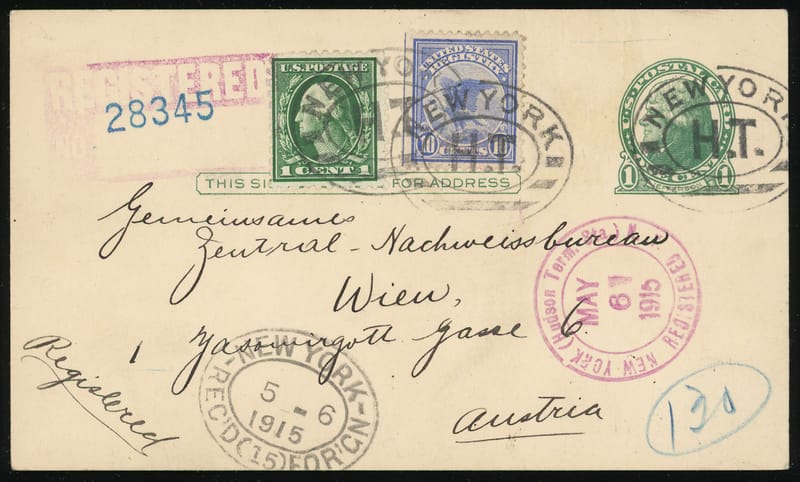 REGISTERED
28345
NO.
U.S. POSTAGE
1 CENT 1
UNITED STATES
REGISTRY
10 CENTS 10
NEW YORK
H.T.
NEW YORK
H.T.
U.S. POSTAL CARD
1 CENT 1
JEFFERSON
NEW YORK
H.T.
THIS SI FOR ADDRESS
Gemeinsames
Zentral-Nachweissbureau
Wien,
1 Jasomirgott Gasse 6.
Austria
Registered
NEW YORK (Hudson Term. Sta.) N.Y.
REGISTERED
MAY
6
1915
NEW YORK
5 - 6
1915
REC'D (15) FOR'GN
130